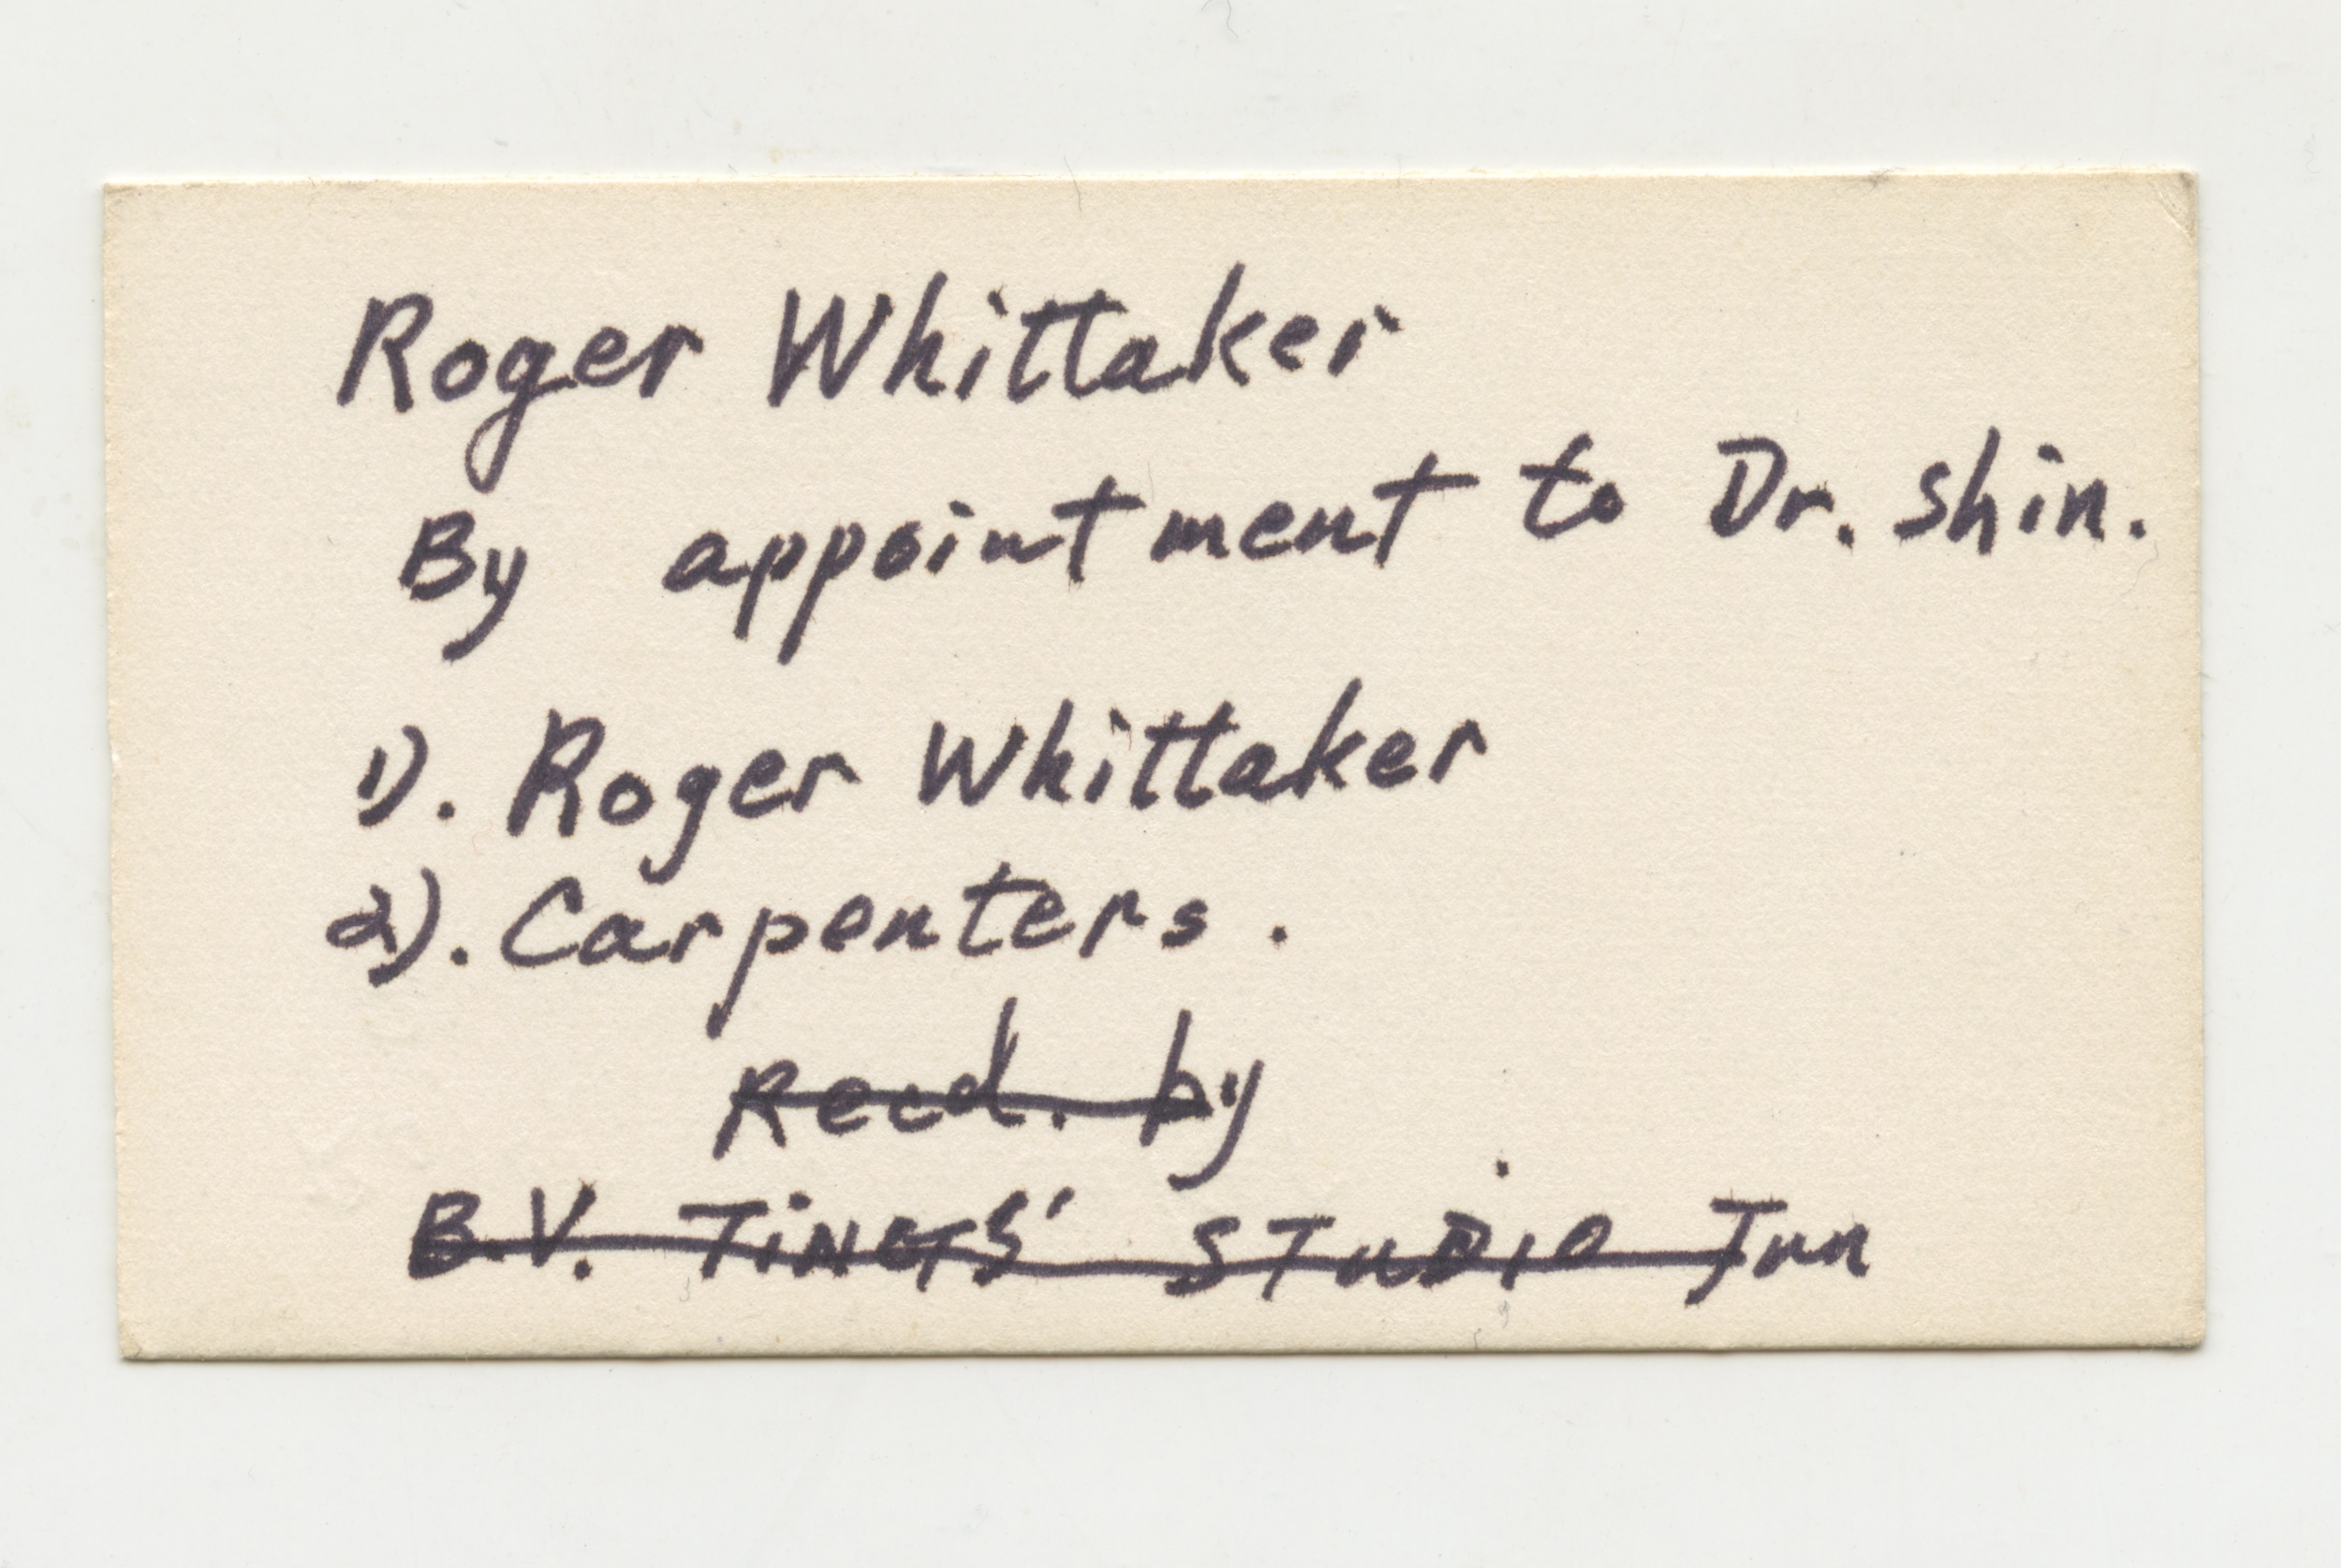 Roger Whittaker
By appointment to Dr. Shin.
1). Roger Whittaker
2). Carpenters.
Recd. by
B.V. TiNGS' STuDiO Inn